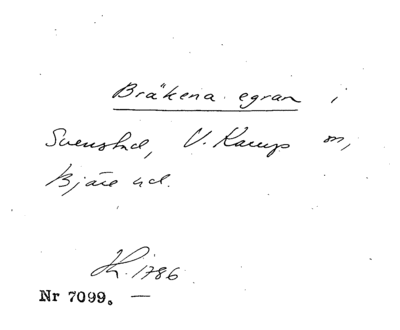 Bräkena egran i
Svenstad, V. Karup sn,
Bjäre hd.
Lh. 1786
Nr 7099. —